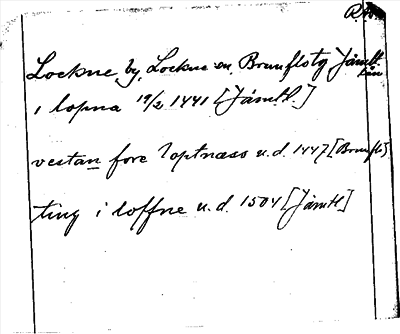 Lockne, by, Lockne sn, Brunflo tg Jämtl.
län
i lopna 19/2 1441 [Jämtl.]
vestan fore loptnæss u.d. 1447 [Brunflo]
ting i loffne u.d. 1504 [Jämtl]